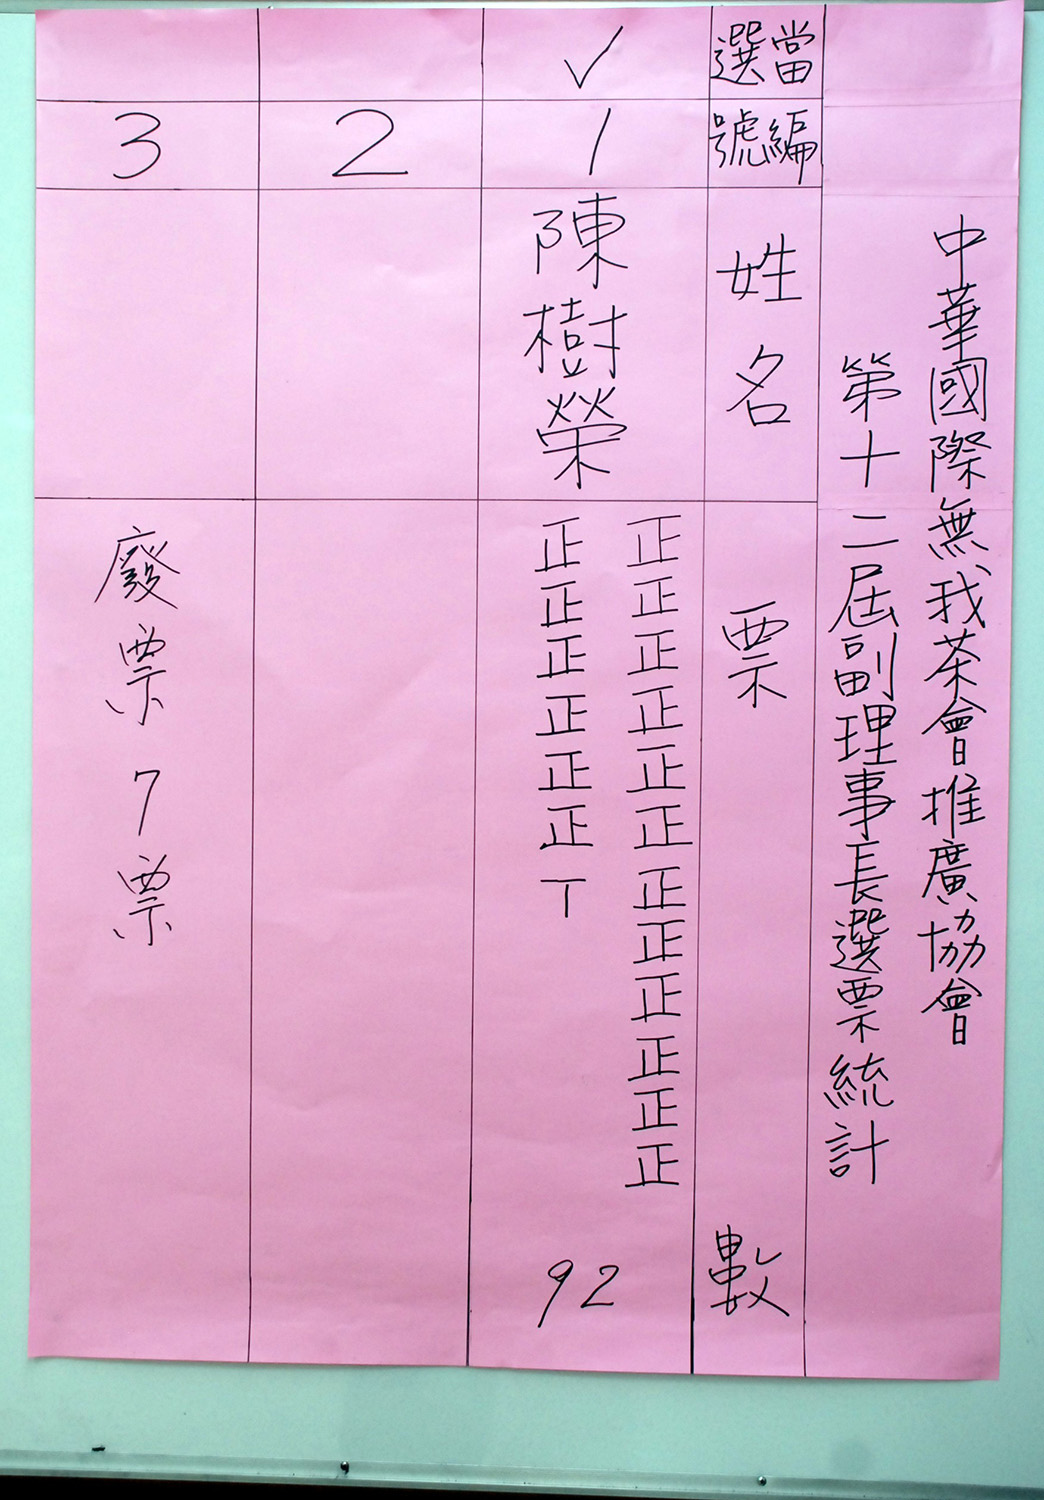 中華國際無我茶會推廣協會
第十二屆副理事長選票統計
當選
編號
姓名
票數
✓
1
陳樹榮
正正正正正正正正正正正正
正正正正正正丅
92
2
3
廢票7票